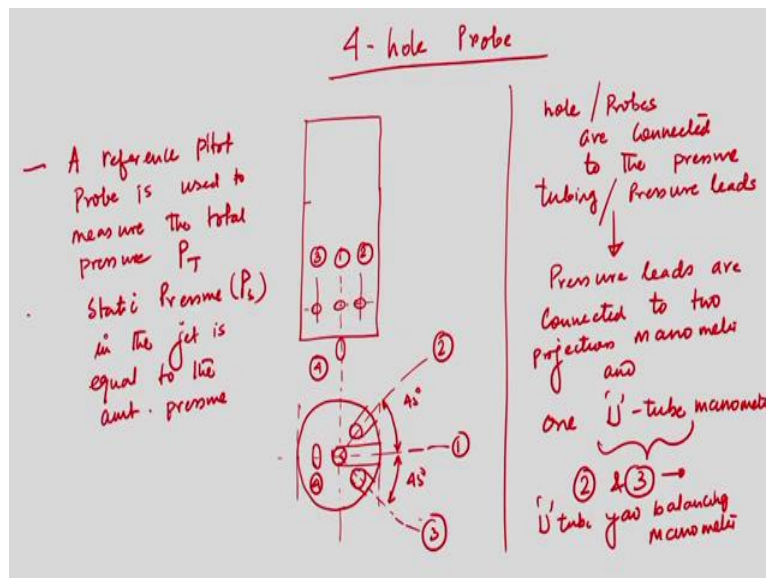 4-hole Probe
— A reference pitot
Probe is used to
measure the total
pressure PT
. Static Pressure (Ps)
in the jet is
equal to the
amt. pressure
③ ① ②
④
②
45°
①
45°
④
③
hole / Probes
are connected
to the pressure
tubing / Pressure leads
Pressure leads are
connected to two
projection manomete
and
one 'U'-tube manomete
② & ③ →
'U' tube yaw balancing
manomete